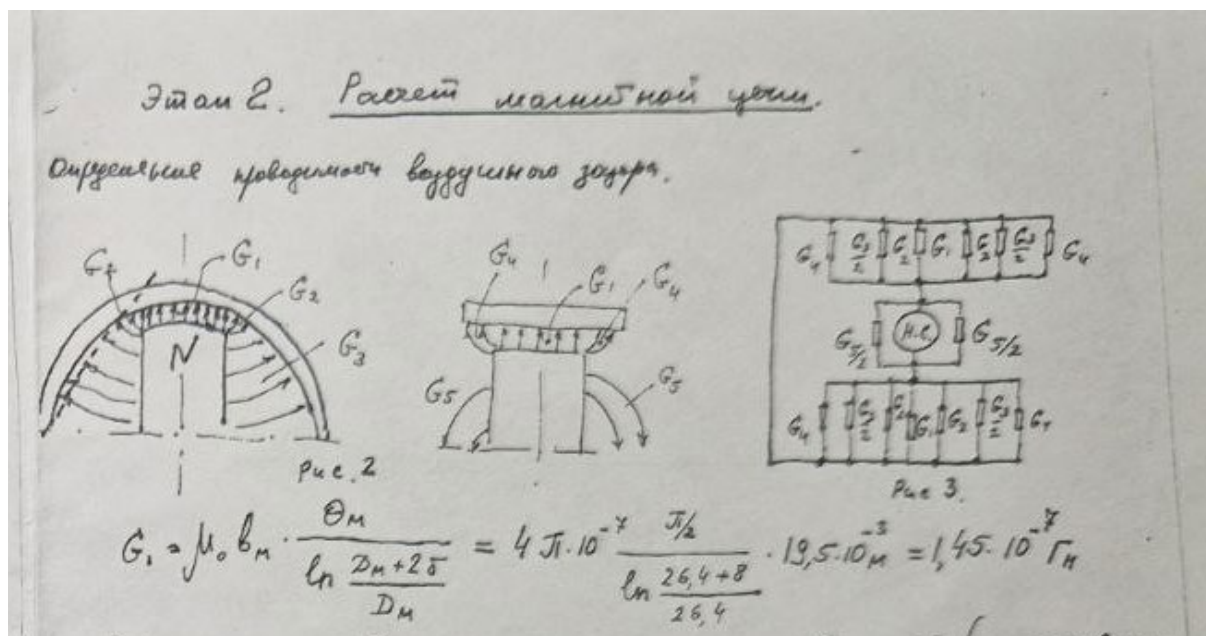 Этап 2. Расчет магнитной цепи.
Определение проводимости воздушного зазора.
G₂ G₁ G₂ G₃ N
Рис. 2
G₄ G₁ G₄ G₅ G₅
G₄ G₃/2 G₂ G₁ G₂ G₃/2 G₄
G₅/2 Н.С. G₅/2
G₄ G₃/2 G₂ G₁ G₂ G₃/2 G₄
Рис 3.
G₁ = μ₀ bм · Θм / ln (Dм + 2δ / Dм) = 4π·10⁻⁷ π/2 / ln (26,4+8 / 26,4) · 19,5·10⁻³м = 1,45·10⁻⁷Гн